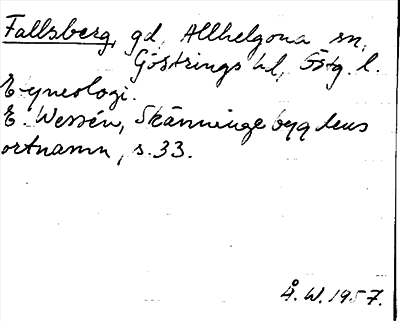 Fallsberg, gd, Allhelgona sn,
Göstrings hd, Östg. l.
Etymologi.
E. Wessén, Skänningebygdens
ortnamn, s. 33.
Å. W. 1957.